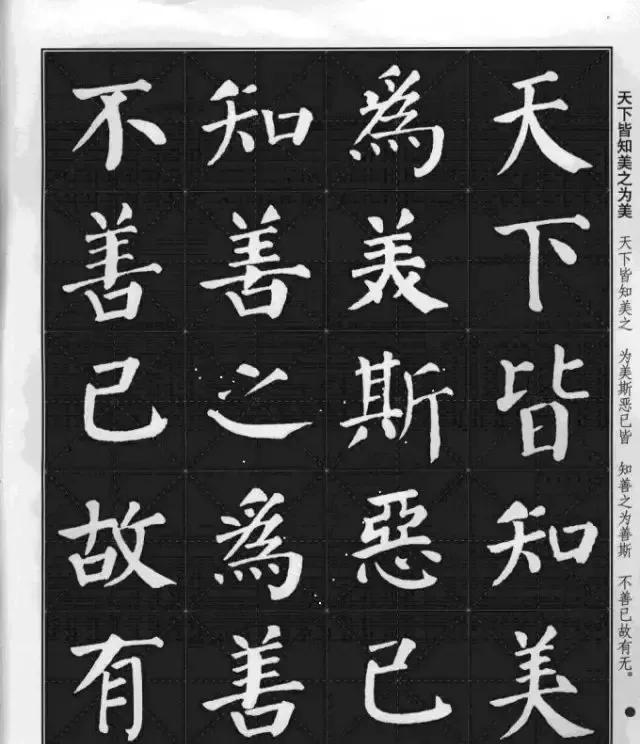 天下皆知美之为美
天下皆知美之　为美斯恶已皆　知善之为善斯　不善已故有无。
天下皆知美
為美斯惡已
知善之為善
不善已故有